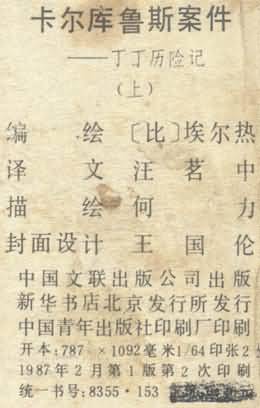 卡尔库鲁斯案件
——丁丁历险记
(上)
编 绘 〔比〕埃尔热
译 文 汪 茗 中
描 绘 何 力
封面设计 王 国 伦
中国文联出版公司出版
新华书店北京发行所发行
中国青年出版社印刷厂印刷
开本:787 ×1092毫米1/64印张2
1987年2月第1版第2次印刷
统一书号:8355·153